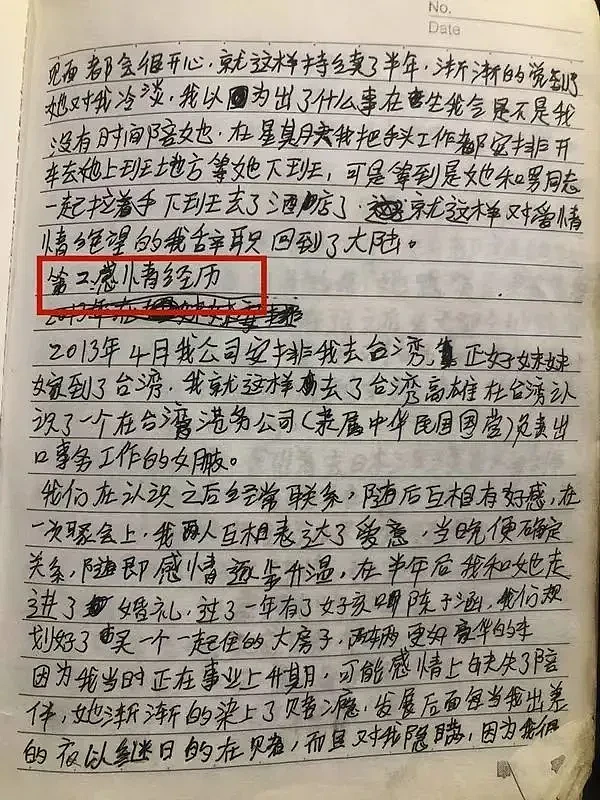 No.
Date
见面都会很开心，就这样持续了半年，渐渐的觉到了
她对我冷淡，我以为出了什么事在生我气是不是我
没有时间陪她，在星期天我把手头工作都安排开
车去她上班地方等她下班，可是等到是她和男同志
一起拉着手下班去了酒店了，就这样对爱情
情绝望的我辞职回到了大陆。
第二感情经历
2013年4月我公司安排我去台湾，正好妹妹
嫁到了台湾，我就这样去了台湾高雄在台湾认
识了一个在台湾港务公司（隶属中华民国国营）负责出
口事务工作的女朋。
我们在认识之后经常联系，随后互相有好感，在
一次聚会上，我两人互相表达了爱意，当晚便确定
关系，随即感情逐步升温，在半年后我和她走
进了婚礼，过了一年有了女孩叫陈子涵，我们规
划好了买一个一起住的大房子，两辆更好豪华的车
因为我当时正在事业上升期，可能感情上缺失了陪
伴，她渐渐的染上了赌瘾，发展后面每当我出差
的夜以继日的在赌，而且对我隐瞒，因为我们